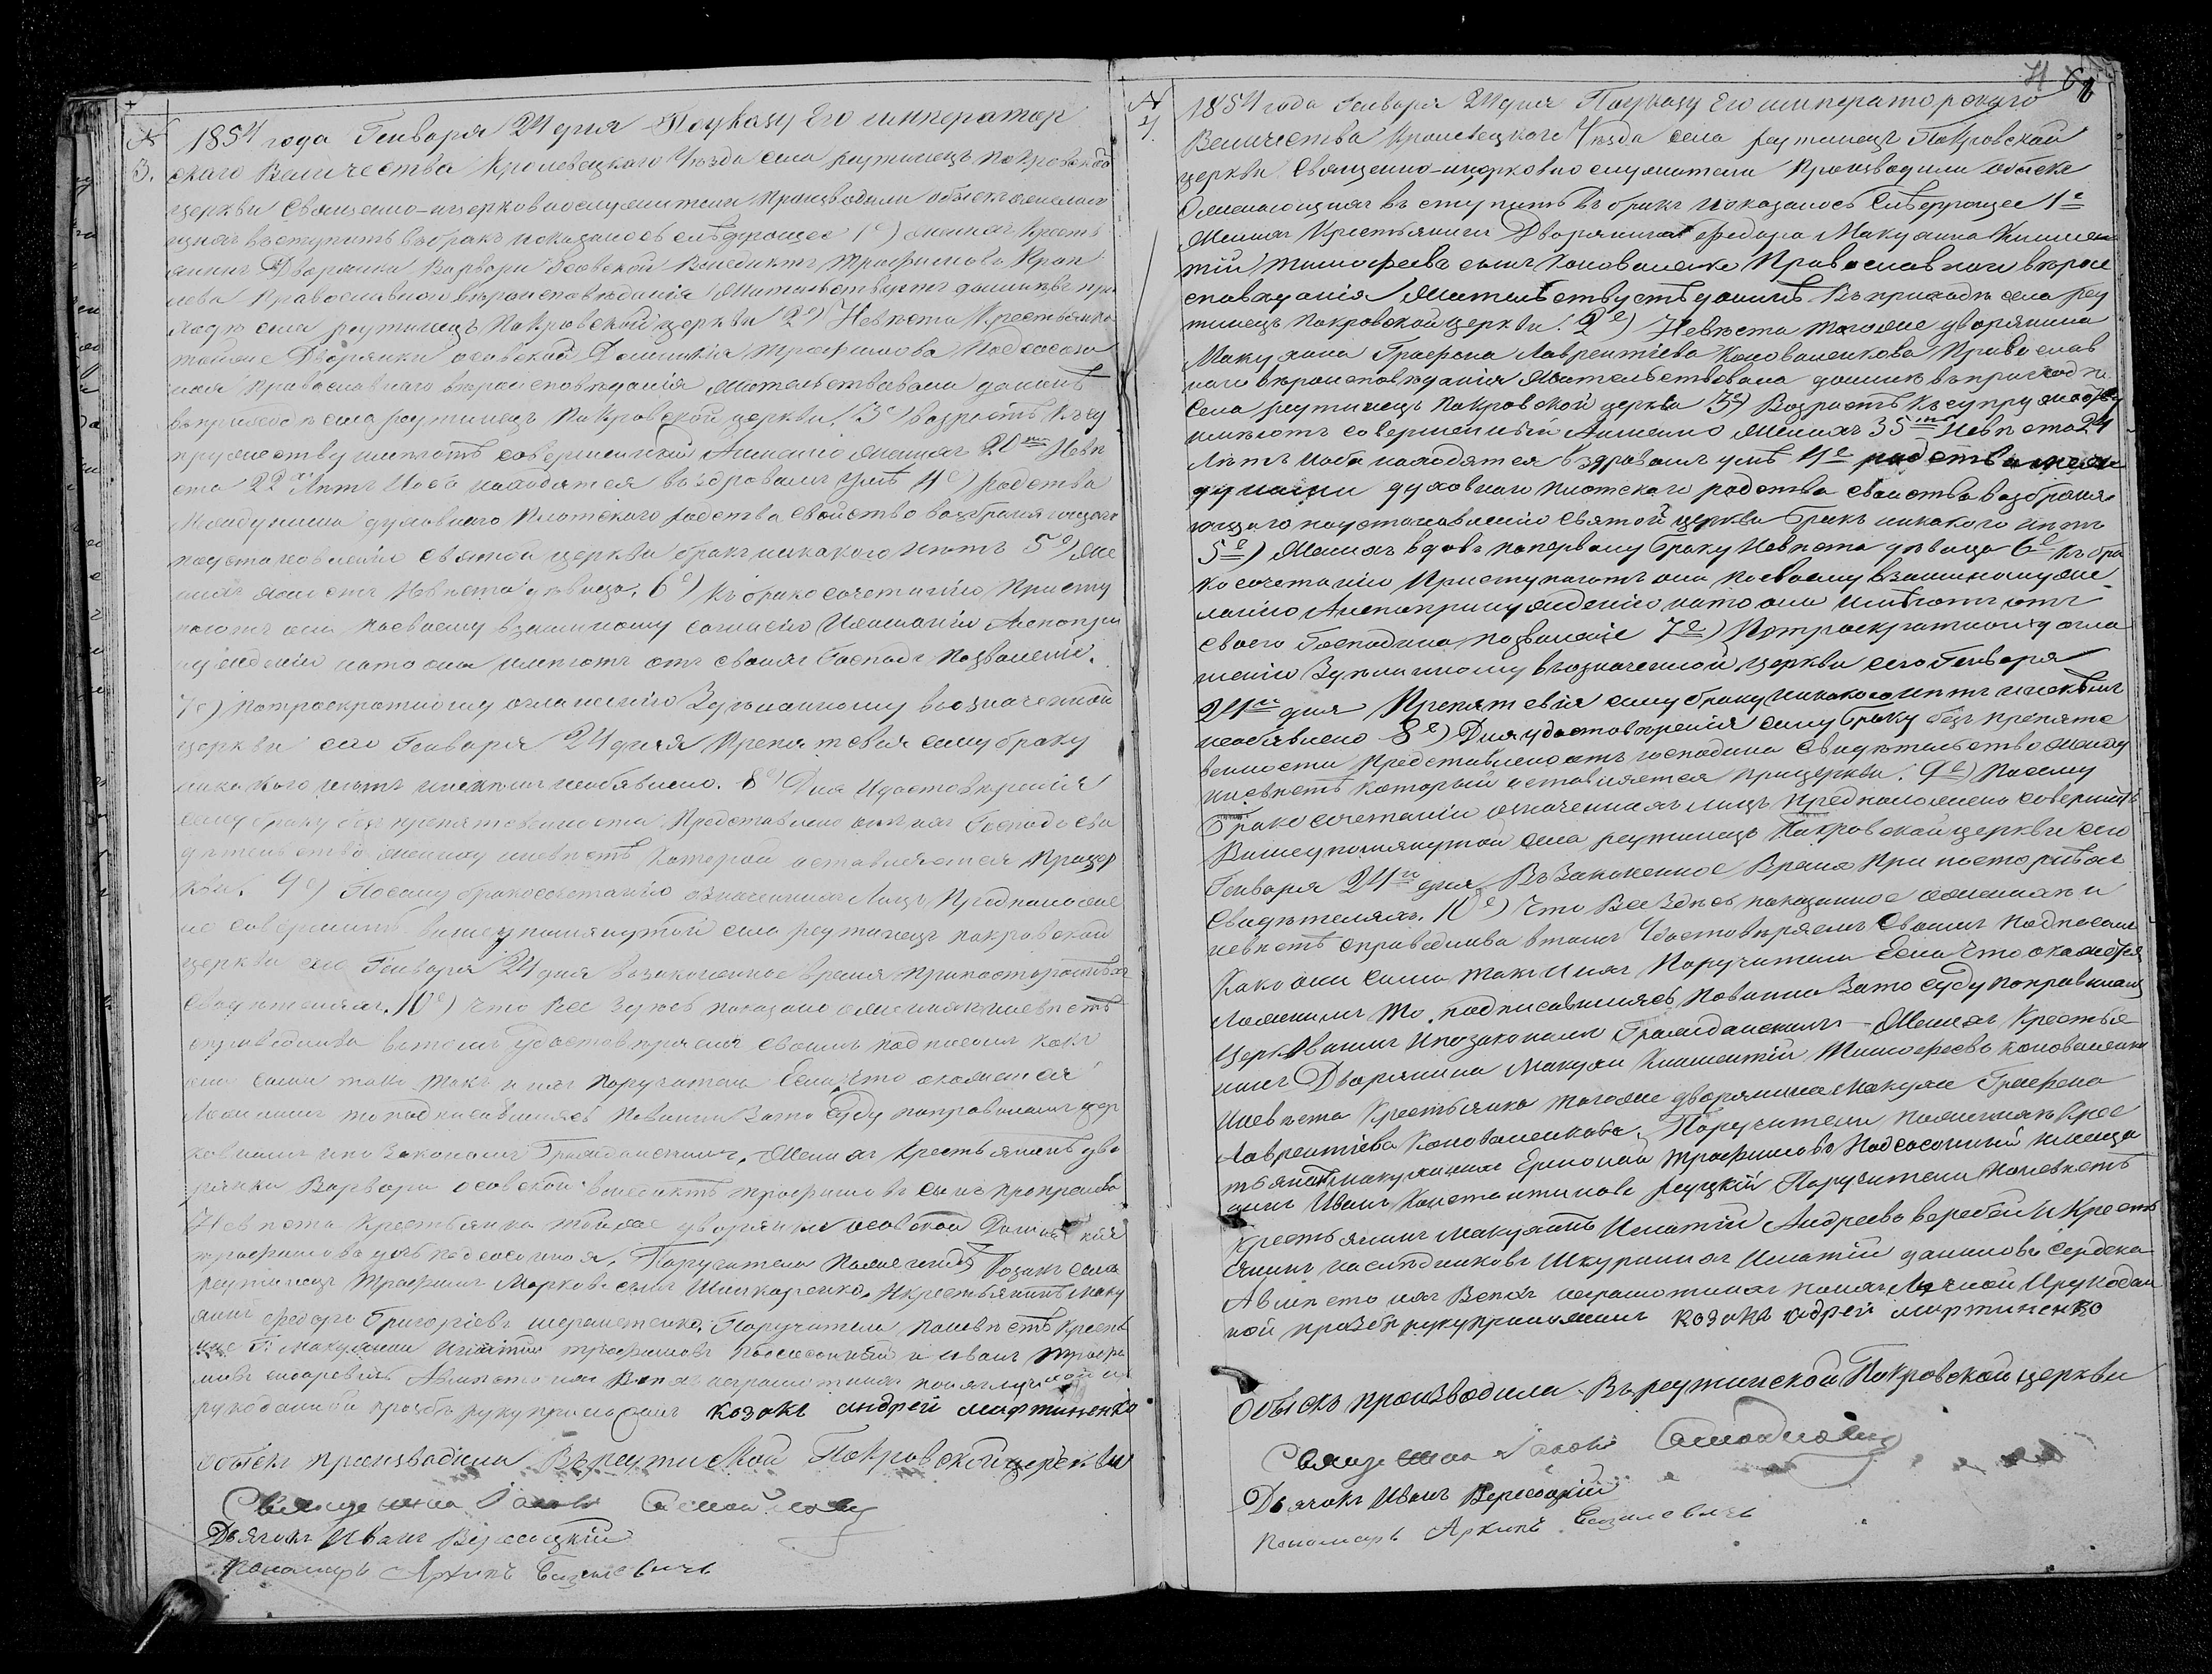 № 3.
1854 года Генваря 24 дня Поуказу Его император
скаго Величества Кролевецкаго Уезда села реутинецъ покровской
церкви Священно-ицерковнослужители производили обыскъ ожелаю
щихъ вступить вбракъ ипоказалось следующее 1е) женихъ Кресть
янинъ Дворянки Варвары Осовской Венедиктъ Трофимовъ
Православнаго вероисповедания Жительствуетъ домомъ въ при
ходе села реутинецъ покровской церкви 2е) Невеста Крестьянка
тойже Дворянки осовской Домникия трофимова Подсосон
ная православнаго вероисповедания жительствовала домомъ
въприходе села реутинецъ Покровской церкви, 3е) возрастъ Късу
пружеству имеютъ совершенный Аименно женихъ 20ть Неве
ста 22 летъ Иоба находятся въздравомъ уме 4е) родства
Междуними духовнаго Плотскаго родства свойства возбраняющаго
поустановлению святой церкви бракъ никакого нетъ 5е) Же
нихъ холостъ Невеста девица, 6е) Къ бракосочетанию Присту
паютъ они посвоему взаимному согласию Ижеланию Анепопри
нуждению нато они имеютъ отъ своихъ Господъ позволение.
7е) потроекратному оглашению Зделанному въозначенной
церкви сего Генваря 24 дня препятствия сему браку
никакого нетъ иникемъ необявлено. 8е) Для Удостоверения
сему браку безпрепятственности Представлено отъ ихъ Господъ Сви
детельство жениху иневесте Которой оставляется прицер
кви. 9е) Посему бракосочетанию означенныхъ Лицъ Предположе
но совершить вышеупомянутой села реутинецъ покровской
церкви сего Генваря 24 дня возаконенное время припостороннихъ
Свидетеляхъ. 10е) что Все Здесь показано ожениhе иневесте
справедливо втомъ удостоверяемъ своимъ подписомъ какъ
они сами такъ и ихъ поручители Если что окажется
Ложнымъ топодписавшиясь повинны Зато Суду поправиламъ цер
ковнымъ ипо Законамъ Гражданскимъ. Женихъ Крестьянинъ дво
рянки Варвары осовской венедиктъ трофимовъ сынъ
Невеста крестьянка тойже дворянки осовской Домникия
трофимова дочь подсосонная. Поручители Поженихе Козакъ села
реутинецъ Трофимъ Марковъ сынъ Шинкаренко. Икрестьянинъ Маку
хинъ федоръ Григориевъ шереметенко. Поручители поневесте Кресть
яне Г. Макухини Игнатий трофимовъ Подсосонный и иванъ трофи
мовъ Авместо ихъ Всехъ неграмотныхъ поихъличной и
рукоданной прозьбе руку приложилъ козакъ андрей мартиненко
обыскъ производили Въреутинской Покровской церкви
Священникъ Iаковъ Самойловичъ
Дьячокъ Иванъ Вересоцкий
Пономарь Архипъ Базилевичъ
68
№ 4.
1854 года Генваря 24 дня Поуказу Его императорскаго
Величества Кролевецкаго Уезда села реутинецъ Покровской
церкви Священно-ицерковнослужители Производили обыскъ
Ожелающихъ вступить въ бракъ ипоказалось Следующее 1е
Женихъ Крестьянинъ Дворянина федора Макухина Климен
тий тимофеевъ сынъ Коноваленко Православнаго вероис
споведания Жительствуетъ домомъ Въприходе села реу
тинецъ покровской церкви: 2е) Невеста тогоже дворянина
Макухина Графена Лаврентиева Коноваленкова Православ
наго вероисповедания Жительствовала домомъ въприходе
Села реутинецъ покровской церкви 3е) Возрастъ Късупружеству
имеютъ совершенный Аименно Женихъ 35ть Невеста 24
Летъ Иоба находятся вздравомъ уме 4е родства меж
дуними духовнаго плотскаго родства свойства возбраня
ющаго поустановлению Святой церкви бракъ никакого нетъ
5е) Женихъ вдовъ поперваму браку Невеста девица 6е Къ бра
косочетанию Приступаютъ они посвоему взаимному же
ланию Анепопринуждению нато они имеютъ отъ
своего Господина позволение 7е) Потроекратному огла
шению Зделанному възначенной церкви сего Генваря
24го дня Препятствия сему браку никакого нетъ иникемъ
необявлено 8е) Для удостоверения сему браку безъ препятс
венности представлено отъ господина Свидетельство жениху
иневесте Который оставляется прицеркви. 9е) Посему
Бракосочетанию означенныхъ лицъ предположено совершить
Вышеупомянутой села реутинецъ Покровской церкви сего
Генваря 24го дня Въ Законенное Время при постороннихъ
Свидетеляхъ. 10е) Что Все Здесь показанное оженихе и
невесте справедливо втомъ Удостоверяемъ Своимъ подписомъ
Како они сами такъ и ихъ Поручители Если что окажется
Ложнымъ то подписавшиясь повинны Зато Суду поправиламъ
Церковнымъ ипозаконамъ Гражданскимъ Женихъ Крестья
нинъ Дворянина Макухи Климентий Тимофеевъ Коноваленко
Иневеста Крестьянка тогоже дворянина Макухи Графена
Лаврентиева Коноваленкова. Поручители поженихе Крес
тьянинъ макухинъ Ермолай трофимовъ Подсосонный
Иванъ Константиновъ реуцкий Поручители поневесте
крестьянинъ макухинъ Игнатий Андреевъ веребей И Кресть
янинъ наследниковъ Шкуриныхъ Игнатий даниловъ Сердюкъ
Авместо ихъ Всехъ неграмотныхъ поихъ Личной Ирукодан
ной прозьбе руку приложилъ козакъ андрей мартиненко
Обыскъ производили Въ реутинской Покровской церкви
Священникъ Iаковъ Самойловичъ
Дьячокъ Иванъ Вересоцкий
Пономарь Архипъ Базилевичъ